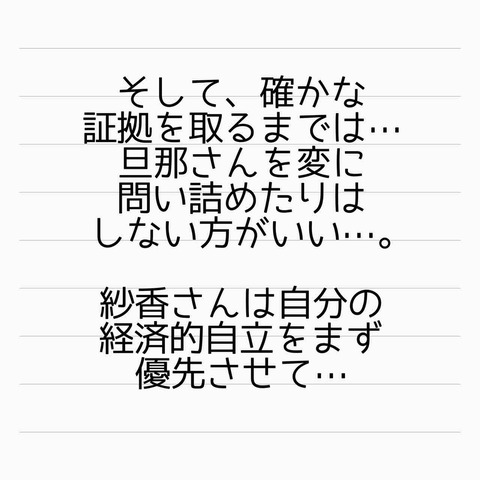 そして、確かな
証拠を取るまでは…
旦那さんを変に
問い詰めたりは
しない方がいい…。
紗香さんは自分の
経済的自立をまず
優先させて…